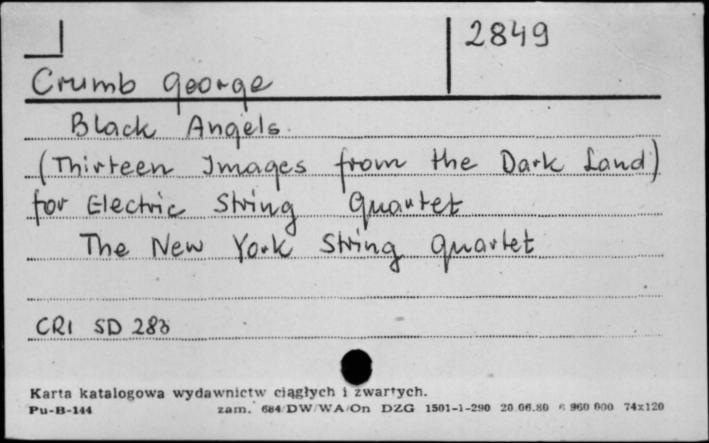 2849
Crumb George
Black Angels
(Thirteen Images from the Dark Land)
for Electric String Quartet
The New York String Quartet
CRI SD 283
Karta katalogowa wydawnictw ciągłych i zwartych.
Pu-B-144 zam. 684/DW/WA/On DZG 1501-1-290 20.06.80 6 960 000 74x120